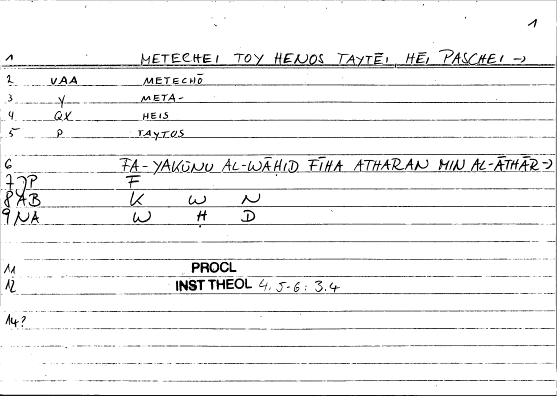 1
1 METECHEI TOY HENOS TAYTĒI HĒI PASCHEI →
2 VAA METECHŌ
3 Y META-
4 QX HEIS
5 P TAYTOS
6 FA-YAKŪNU AL-WĀḤID FĪHA ATHARAN MIN AL-ĀTHĀR →
7 JP F
8 AB K W N
9 NA W Ḥ D
11 PROCL
12 INST THEOL 4.5-6: 3.4
14?